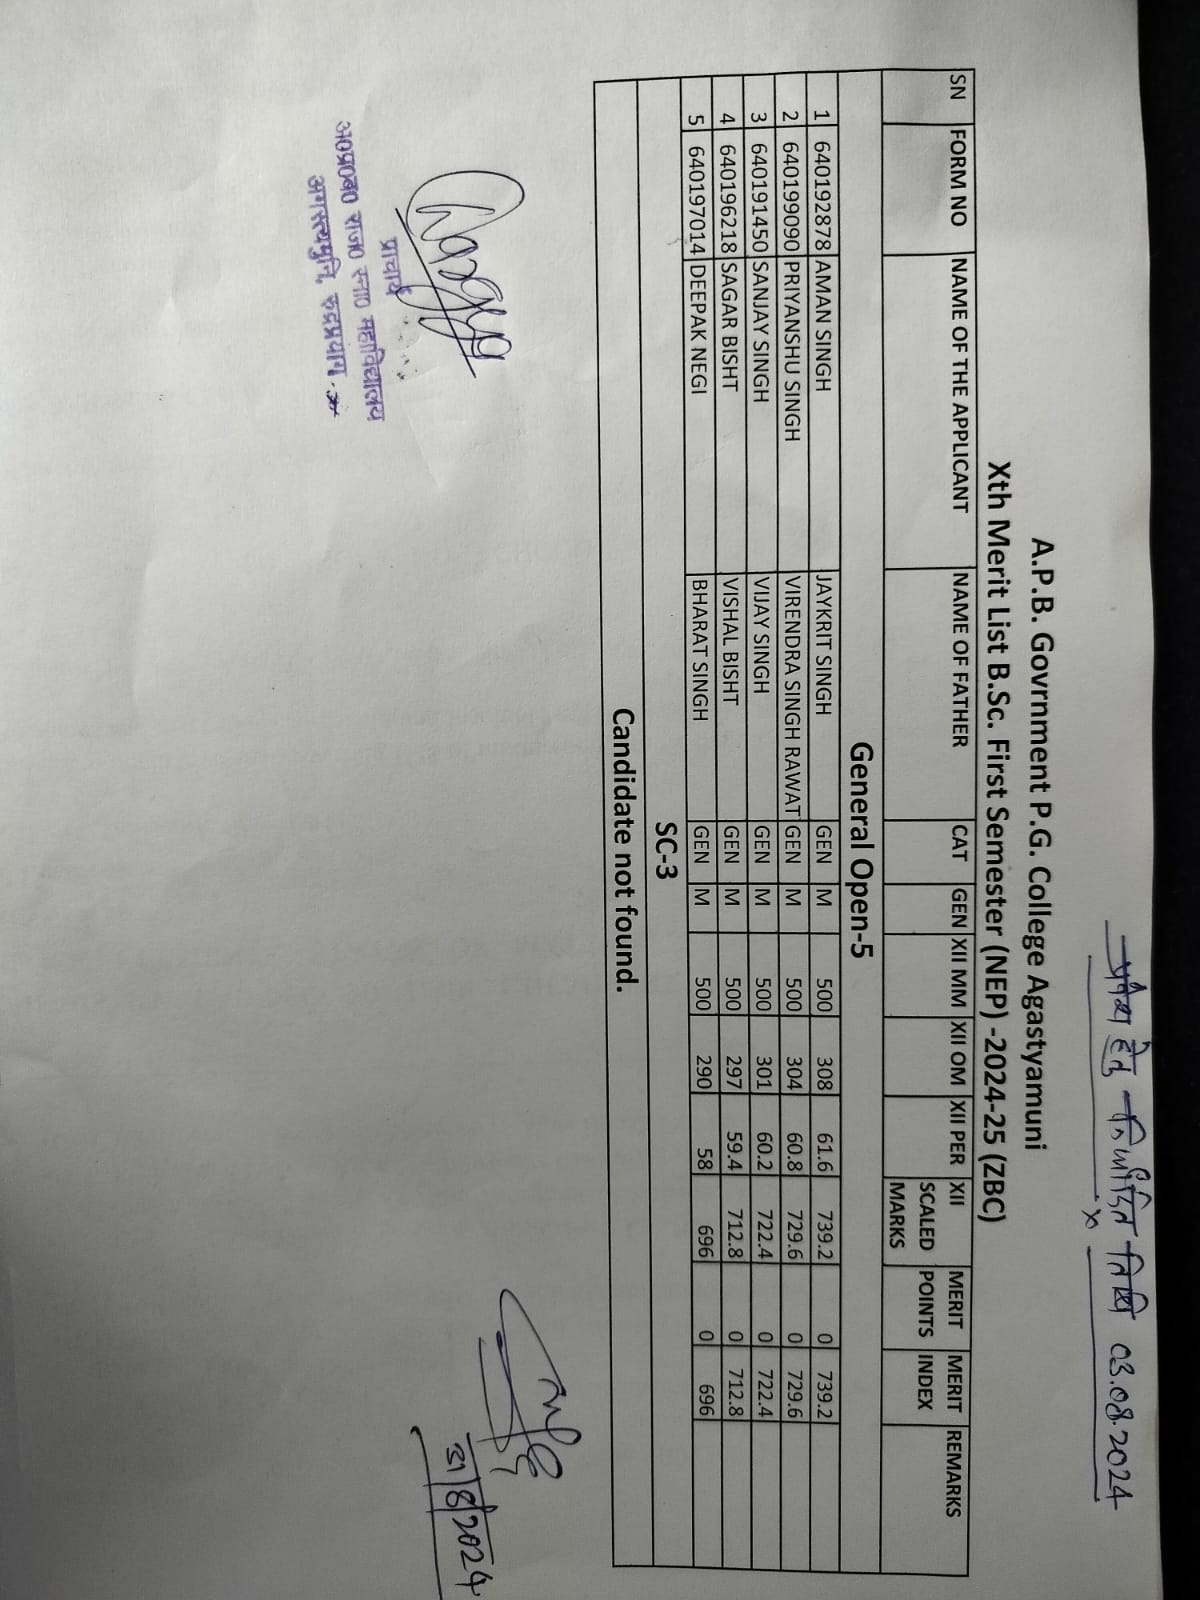 प्रवेश हेतु निर्धारित तिथि 03.08.2024
A.P.B. Govrnment P.G. College Agastyamuni
Xth Merit List B.Sc. First Semester (NEP) -2024-25 (ZBC)
SN FORM NO NAME OF THE APPLICANT NAME OF FATHER CAT GEN XII MM XII OM XII PER XII SCALED MARKS MERIT POINTS MERIT INDEX REMARKS
General Open-5
1 640192878 AMAN SINGH JAYKRIT SINGH GEN M 500 308 61.6 739.2 0 739.2
2 640199090 PRIYANSHU SINGH VIRENDRA SINGH RAWAT GEN M 500 304 60.8 729.6 0 729.6
3 640191450 SANJAY SINGH VIJAY SINGH GEN M 500 301 60.2 722.4 0 722.4
4 640196218 SAGAR BISHT VISHAL BISHT GEN M 500 297 59.4 712.8 0 712.8
5 640197014 DEEPAK NEGI BHARAT SINGH GEN M 500 290 58 696 0 696
SC-3
Candidate not found.
31/8/2024
प्राचार्य
अ०प्र०ब० राज० स्ना० महाविद्यालय
अगस्त्यमुनि, रुद्रप्रयाग